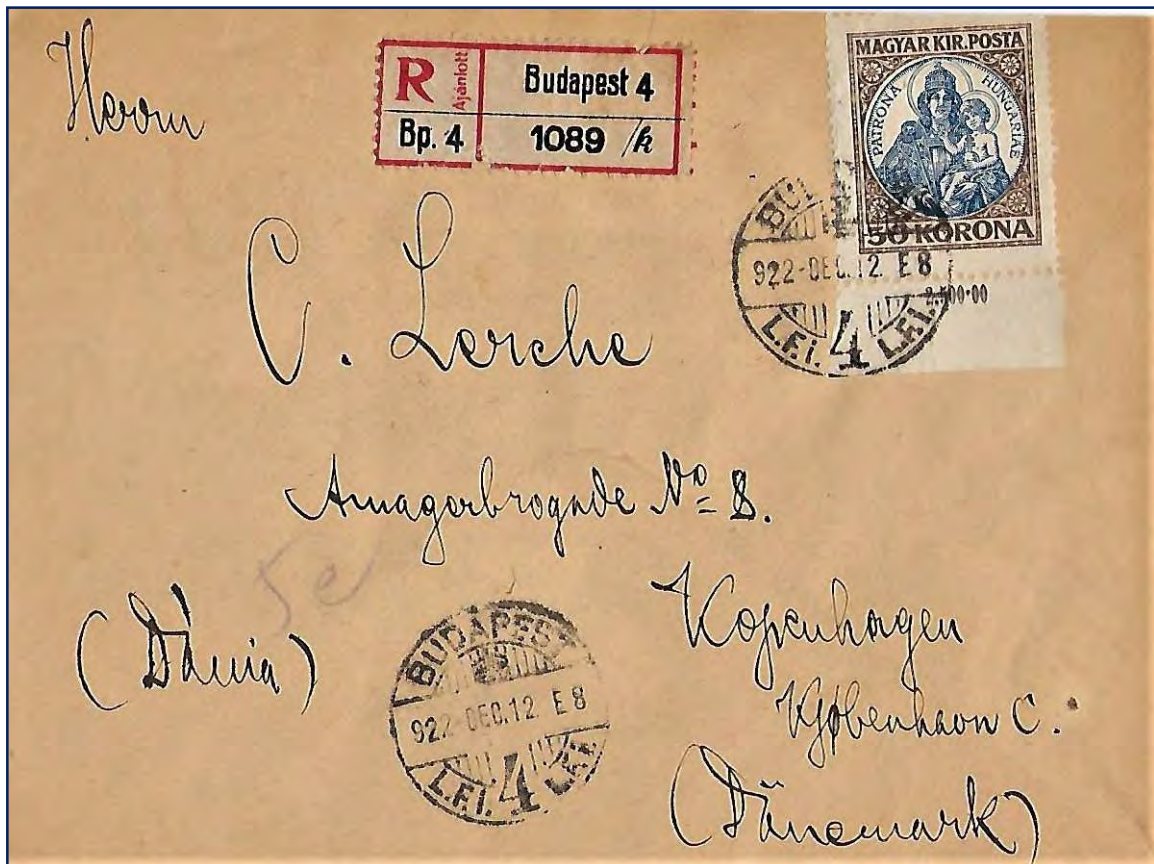 Herrn
R
Ajánlott
Budapest 4
Bp. 4
1089 /k
MAGYAR KIR. POSTA
PATRONA HUNGARIAE
50 KORONA
2.500·00
BU
922-DEC.12. E 8
L.F.i. 4 L.F.i.
C. Lerche
Amagerbrogade No 8.
5e
(Dánia)
BUDAPEST
922-DEC.12 E 8
L.F.i. 4 L.F.i.
Kopenhagen
København C.
(Dänemark)